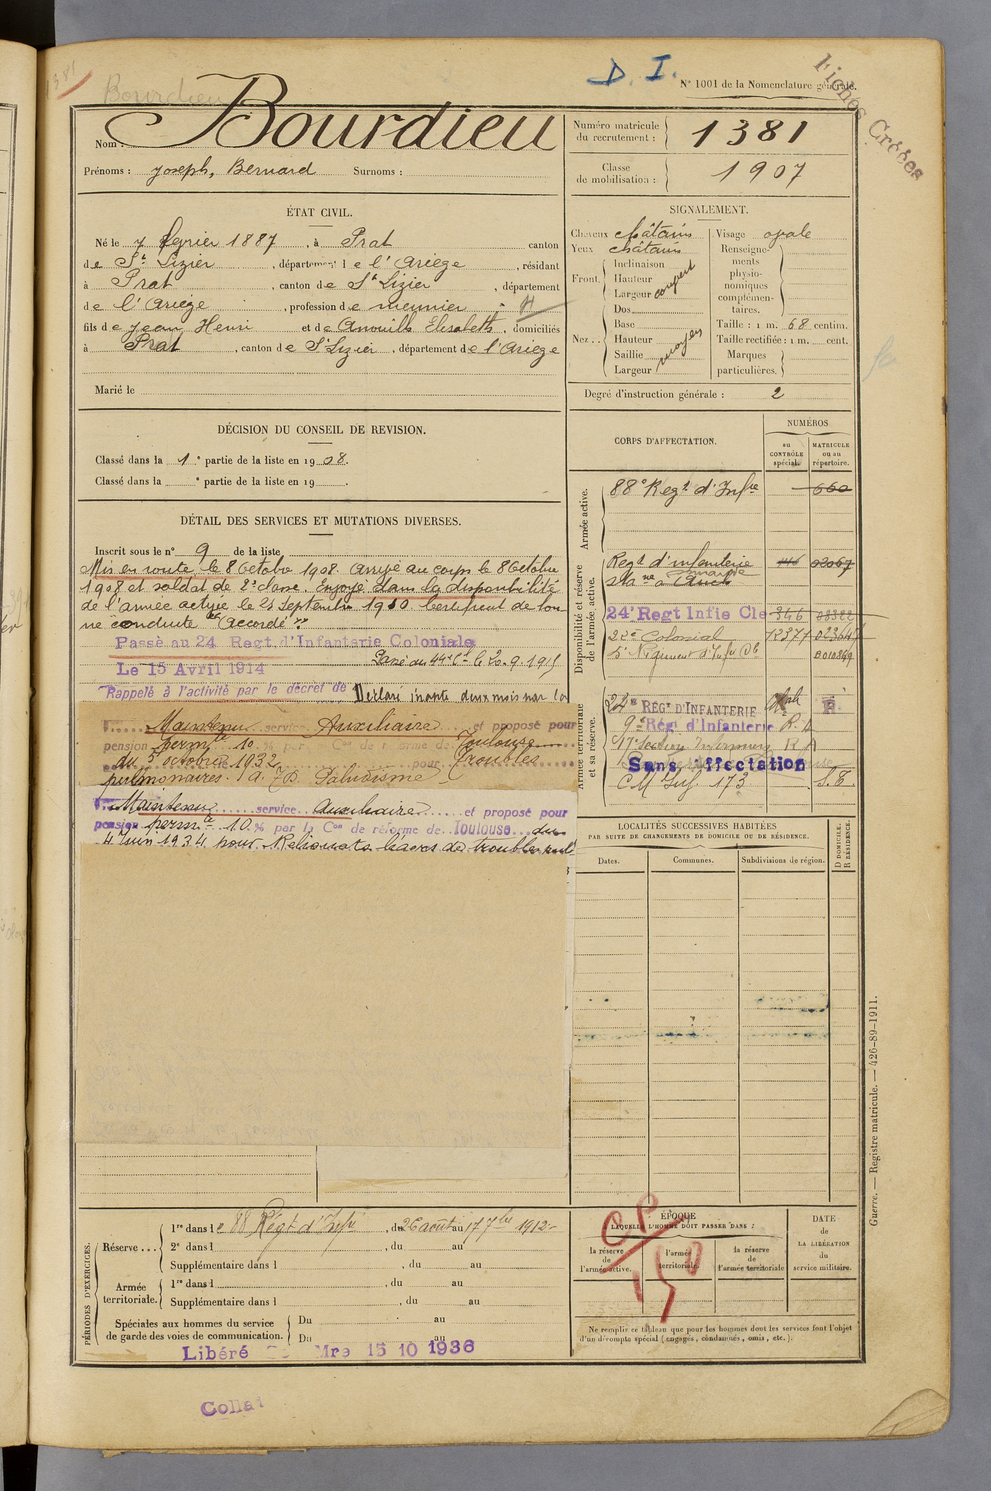 1381
Bourdieu
D. I.
N° 1001 de la Nomenclature générale.
Fiches Créées
Nom : Bourdieu
Prénoms : Joseph, Bernard Surnoms :
Numéro matricule du recrutement : 1381
Classe de mobilisation : 1907
ÉTAT CIVIL.
Né le 7 février 1887, à Prat canton
de St Lizier, département de l'Ariège, résidant
à Prat, canton de St Lizier, département
de l'Ariège, profession de meunier
fils de Jean Henri et de Anouilh Elisabeth, domiciliés
à Prat, canton de St Lizier, département de l'Ariège
Marié le
SIGNALEMENT.
Cheveux châtains
Yeux châtains
Front. Inclinaison
Hauteur
Largeur
Nez.. Dos
Base
Hauteur
Saillie
Largeur
moyen
Visage ovale
Renseignements physionomiques complémentaires.
Taille : 1 m. 68 centim.
Taille rectifiée : 1 m. cent.
Marques particulières.
Degré d'instruction générale : 2
DÉCISION DU CONSEIL DE REVISION.
Classé dans la 1e partie de la liste en 1908.
Classé dans la e partie de la liste en 19 .
CORPS D'AFFECTATION.
NUMÉROS
au CONTRÔLE spécial.
MATRICULE ou au répertoire.
Armée active.
88e Regt d'Infie 660
Disponibilité et réserve de l'armée active.
Regt d'infanterie
24e Regt Infie Cle 346
22e Colonial
5e Régiment d'Infie Cle
Armée territoriale et sa réserve.
RÉGt D'INFANTERIE
9e Rég d'Infanterie R. A
17e Section Infirmiers R A
Sans affectation
C M Inf. 173 S. F.
DÉTAIL DES SERVICES ET MUTATIONS DIVERSES.
Inscrit sous le n° 9 de la liste
Mis en route le 8 Octobre 1908. Arrivé au corps le 8 Octobre
1908 et soldat de 2e classe. Envoyé dans la disponibilité
de l'armée active le 25 Septembre 1910. Certificat de bon
ne conduite "Accordé"
Passé au 24 Regt. d'Infanterie Coloniale
Le 15 Avril 1914
Passé au 44e Cl le 20.9.1915
Rappelé à l'activité par le décret de
Déclaré inapte deux mois par la
Maintenu service Auxiliaire et proposé pour
pension permte 10 % par Con de réforme de Toulouse
du 5 octobre 1932 pour Troubles
pulmonaires. Paludisme
Maintenu service auxiliaire et proposé pour
pension permte 10 % par la Con de réforme de Toulouse du
4 Juin 1934 pour Reliquats légers de troubles
LOCALITÉS SUCCESSIVES HABITÉES
PAR SUITE DE CHANGEMENTS DE DOMICILE OU DE RÉSIDENCE.
Dates.
Communes.
Subdivisions de région.
D DOMICILE. R RÉSIDENCE.
Guerre. — Registre matricule. — 426-89-1911.
PÉRIODES D'EXERCICES.
Réserve... 1re dans le 88 Régt d'Infie, du 26 août au 17 7bre 1912
2e dans l , du au
Supplémentaire dans l , du au
Armée territoriale. 1re dans l , du au
Supplémentaire dans l , du au
Spéciales aux hommes du service de garde des voies de communication. Du au
Du au
Libéré Mre 15 10 1936
ÉPOQUE
À LAQUELLE L'HOMME DOIT PASSER DANS :
la réserve de l'armée active.
l'armée territoriale.
la réserve de l'armée territoriale
DATE DE LA LIBÉRATION du service militaire.
CP 150
Ne remplir ce tableau que pour les hommes dont les services font l'objet
d'un décompte spécial (engagés, condamnés, omis, etc.).
Collat